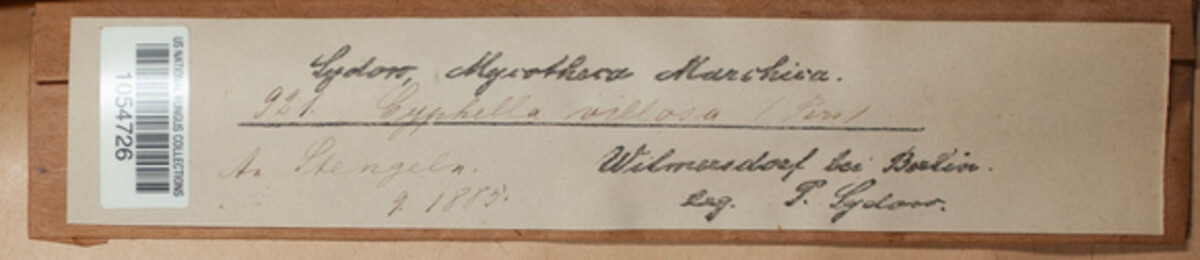 Sydow, Mycotheca Marchica.
921. Cyphella villosa (Pers)
An Stengeln. Wilmersdorf bei Berlin.
9. 1885. Leg. P. Sydow.
US NATIONAL FUNGUS COLLECTIONS
1054726